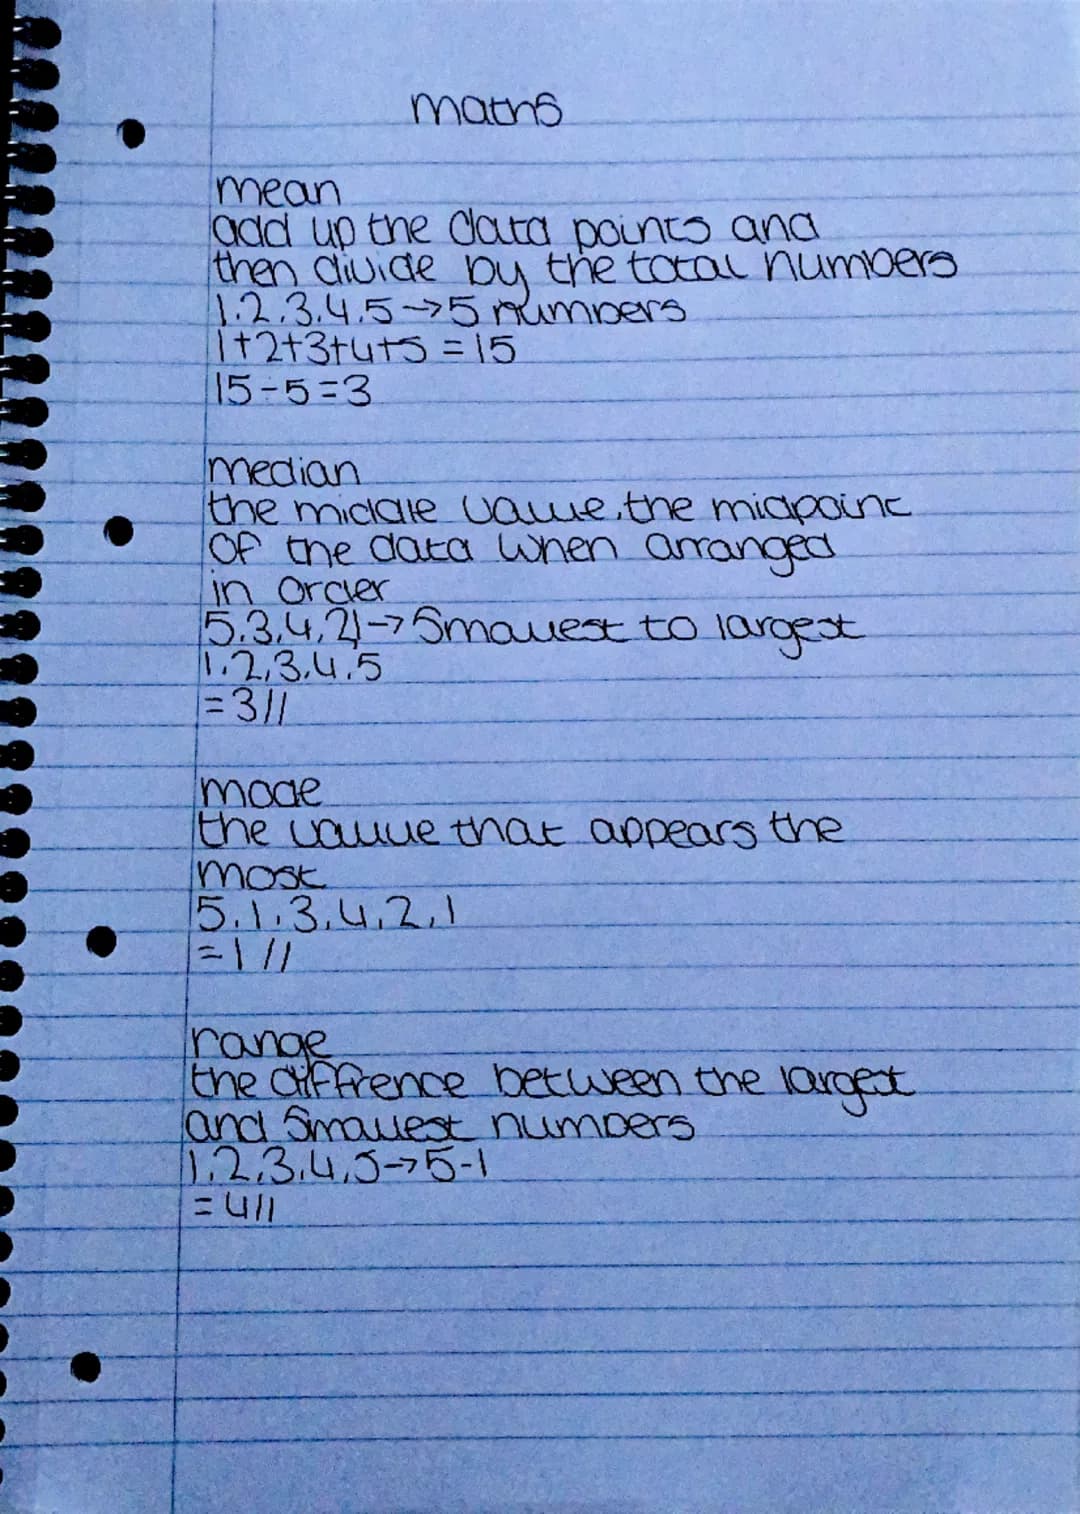 maths
mean
add up the data points and
then divide by the total numbers
1.2.3.4.5→5 numbers
1+2+3+4+5=15
15÷5=3
median
the middle value, the midpoint
of the data when arranged
in order
5.3,4,21→smallest to largest
1.2,3.4.5
=3//
mode
the value that appears the
most
5.1.3.4.2.1
=1//
range
the diffrence between the largest
and smallest numbers
1.2.3.4.5→5-1
=4//